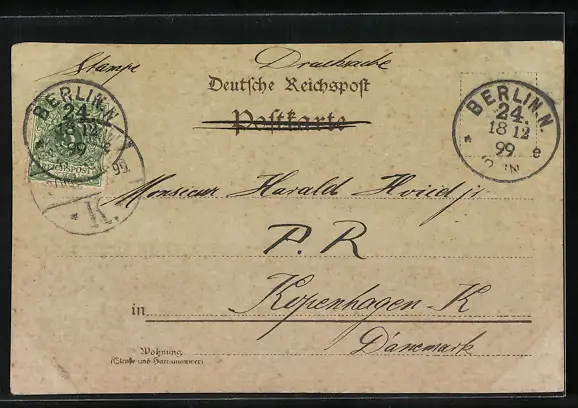 Stampe Drucksache
Deutsche Reichspost
Postkarte
BERLIN.N.
24.
18 12
99
REICHSPOST
BERLIN.N.
24.
18 12
99
* e
N
99
* K.
Monsieur Harald jr
P. R
in Kopenhagen-K
Dänemark
Wohnung
(Straße und Hausnummer)